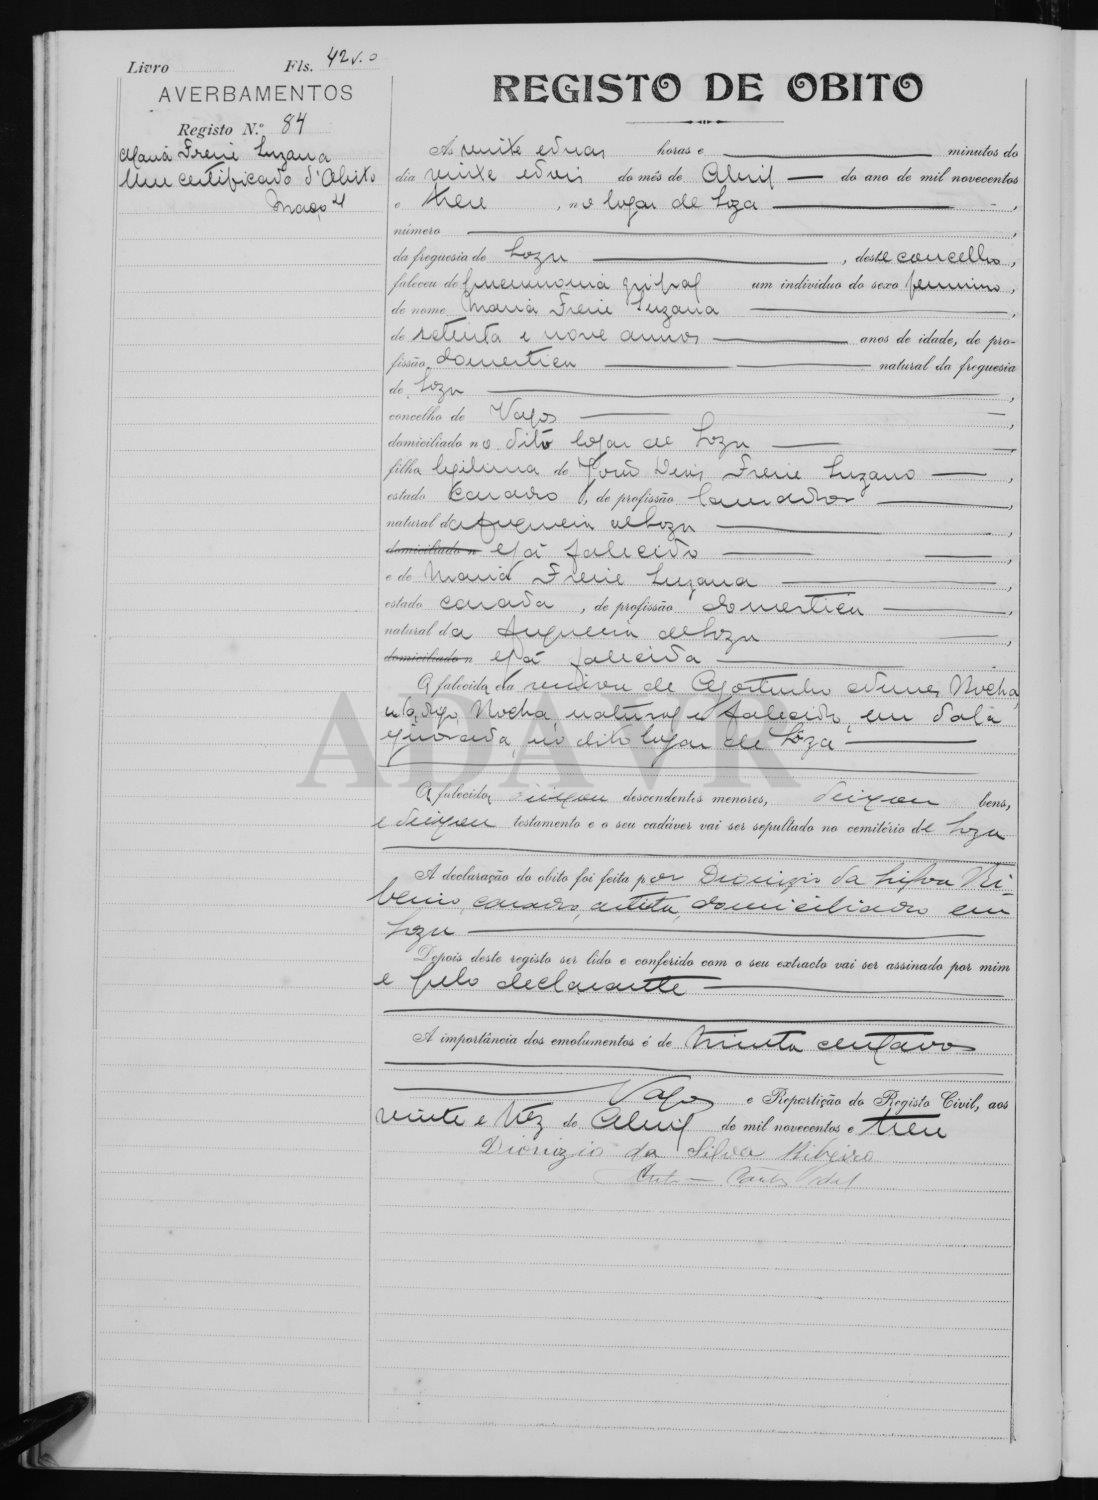 Livro Fls. 42 v.o
AVERBAMENTOS
Registo N.º 84
Maria Freire Luzana
Um certificado d'Obito
Maço 4
REGISTO DE OBITO
Ás vinte e duas horas e minutos do
dia vinte e dois do mês de Abril do ano de mil novecentos
e treze, no logar de Soza,
número,
da freguesia de Soza, deste concelho,
faleceu de pneumonia gripal um individuo do sexo feminino,
de nome Maria Freire Luzana,
de setenta e nove annos anos de idade, de pro-
fissão domestica natural da freguesia
de Soza,
concelho de Vagos,
domiciliado no dito logar de Soza,
filha legitima de João Freire Luzano,
estado casado, de profissão lavrador,
natural da freguesia de Soza,
domiciliado n e já falecido,
e de Maria Freire Luzana,
estado casada, de profissão domestica,
natural da freguesia de Soza,
domiciliado n e já falecida.
A falecida era viuva de Agostinho Nunes Rocha,
digo, Rocha, natural e falecido, em data
ignorada, no dito logar de Soza
A falecida deixou descendentes menores, deixou bens,
e deixou testamento e o seu cadáver vai ser sepultado no cemitério de Soza
A declaração do obito foi feita por Dionizio da Silva Ri-
beiro, casado, artista, domiciliado em
Soza
Depois deste registo ser lido e conferido com o seu extracto vai ser assinado por mim
e pelo declarante
A importância dos emolumentos é de trinta centavos
Vagos e Repartição do Registo Civil, aos
vinte e trez de Abril de mil novecentos e treze
Dionizio da Silva Ribeiro
ADAVR